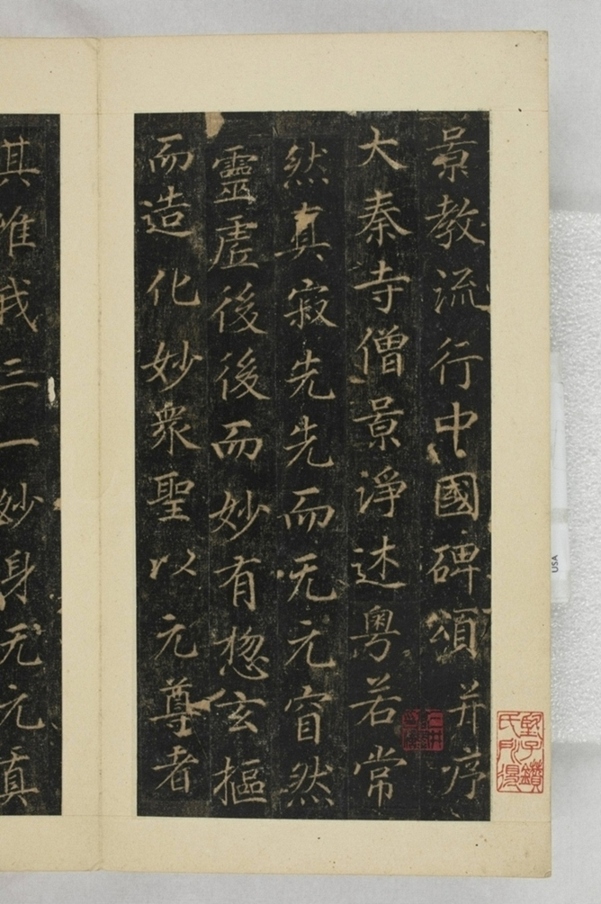 景教流行中國碑頌并序
大秦寺僧景淨述粵若常
然真寂先先而无元窅然
靈虛後後而妙有惣玄摳
而造化妙衆聖以元尊者
其唯我三一妙身无元真
USA